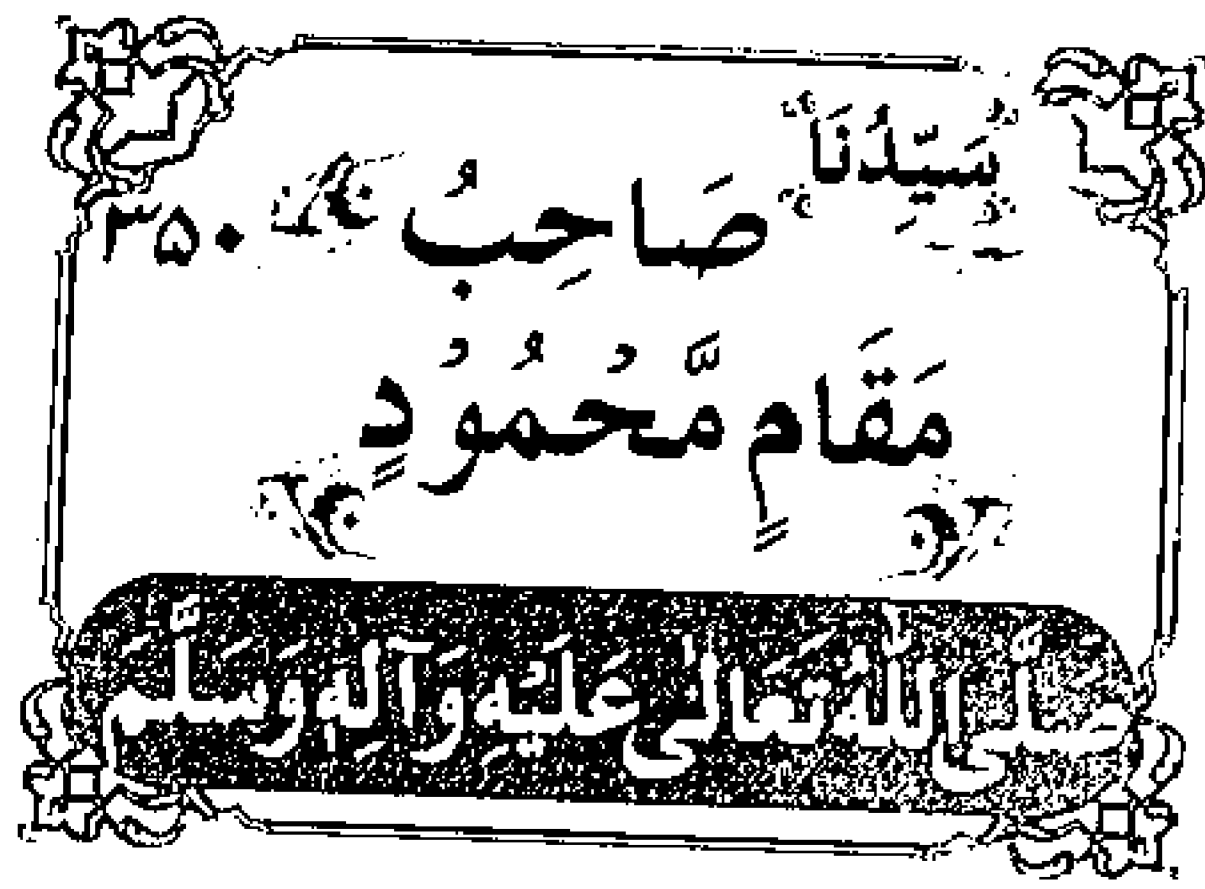 سَيِّدُنَا
صَاحِبُ ۳۵۰
مَقَامٍ مَّحْمُوْدٍ
صَلَّى اللّٰهُ تَعَالٰى عَلَيْهِ وَآلِهٖ وَسَلَّمَ